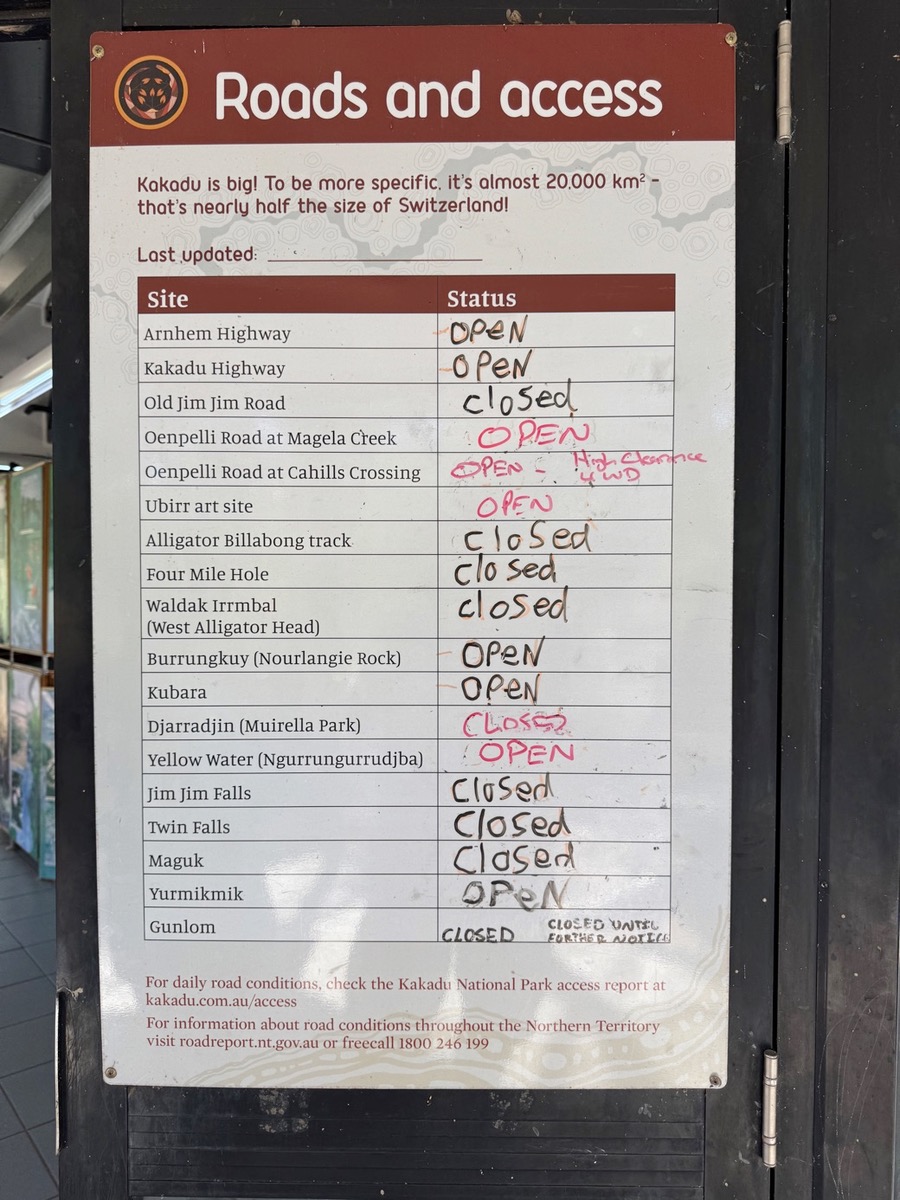 Roads and access
Kakadu is big! To be more specific, it's almost 20,000 km² -
that's nearly half the size of Switzerland!
Last updated:
Site Status
Arnhem Highway OPeN
Kakadu Highway OPeN
Old Jim Jim Road closed
Oenpelli Road at Magela Creek OPEN
Oenpelli Road at Cahills Crossing OPEN - High Clearance
4WD
Ubirr art site OPEN
Alligator Billabong track closed
Four Mile Hole closed
Waldak Irrmbal closed
(West Alligator Head)
Burrungkuy (Nourlangie Rock) OPeN
Kubara OPeN
Djarradjin (Muirella Park) CLOSED
Yellow Water (Ngurrungurrudjba) OPEN
Jim Jim Falls Closed
Twin Falls Closed
Maguk Closed
Yurmikmik OPeN
Gunlom CLOSED CLOSED UNTIL
FORTHER NOTICE
For daily road conditions, check the Kakadu National Park access report at
kakadu.com.au/access
For information about road conditions throughout the Northern Territory
visit roadreport.nt.gov.au or freecall 1800 246 199